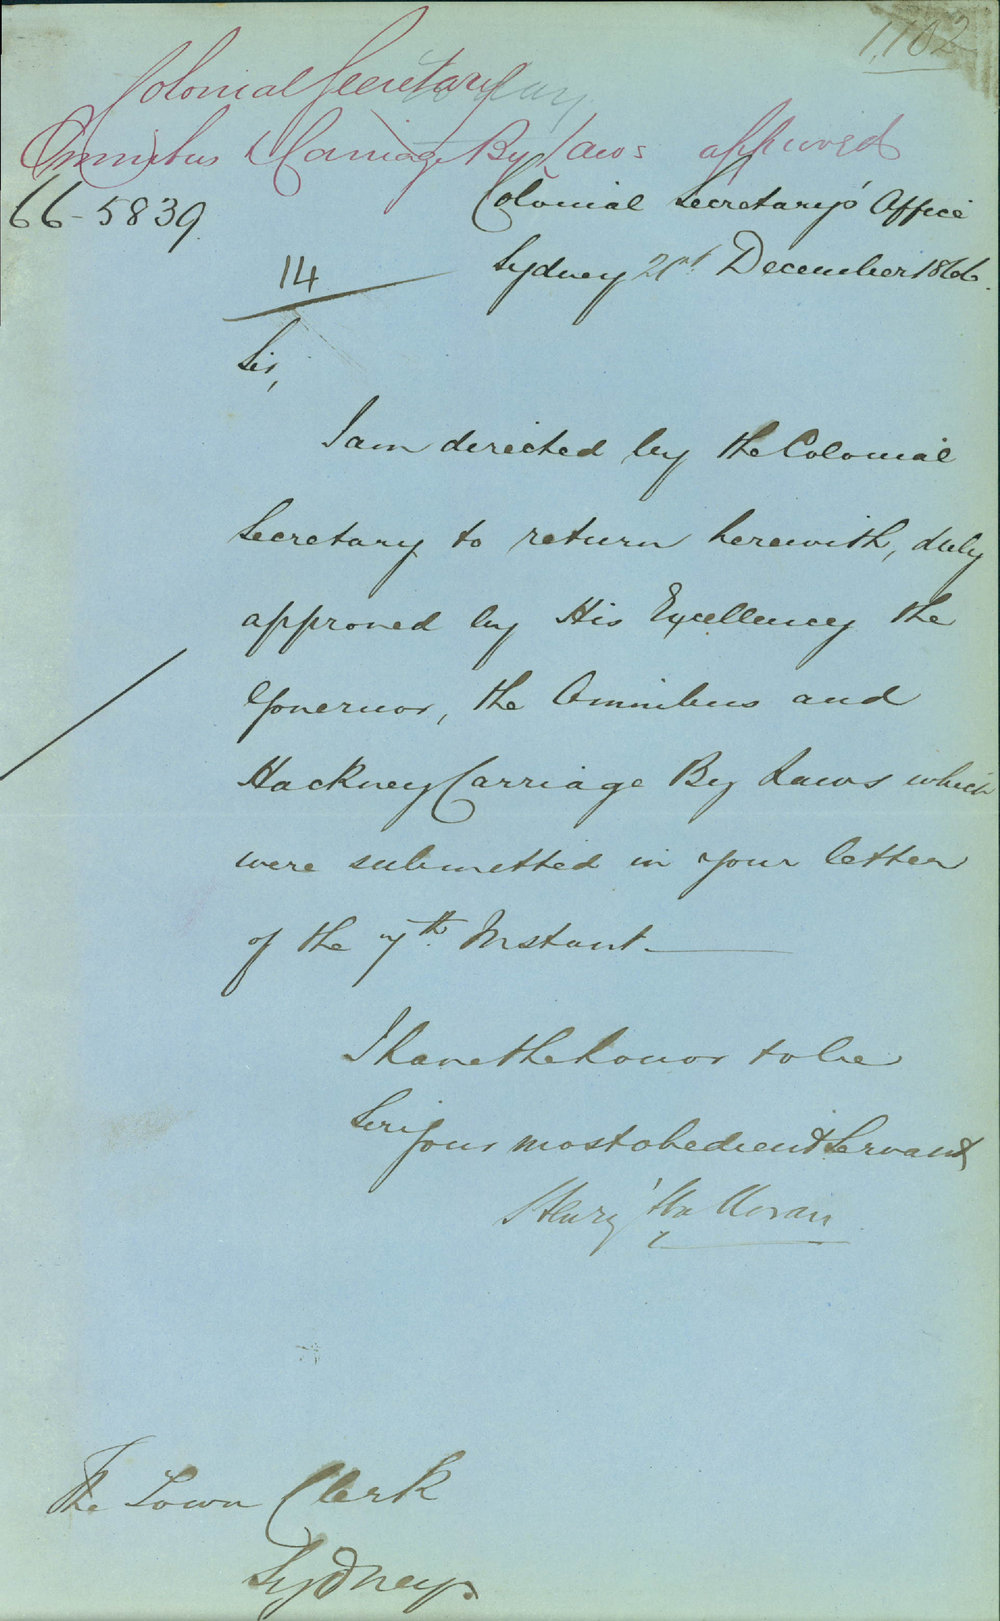 1,102
Colonial Secretary
Omnibus & Carriage By Laws approved
66-5839.
Colonial Secretary's Office
14
Sydney 21st December 1866.
Sir,
I am directed by the Colonial
Secretary to return herewith, duly
approved by His Excellency the
Governor, the Omnibus and
Hackney Carriage By Laws which
were submitted in your letter
of the 7th Instant.
I have the honor to be
Sir
Your most obedient Servant
Henry Halloran
The Town Clerk
Sydney.